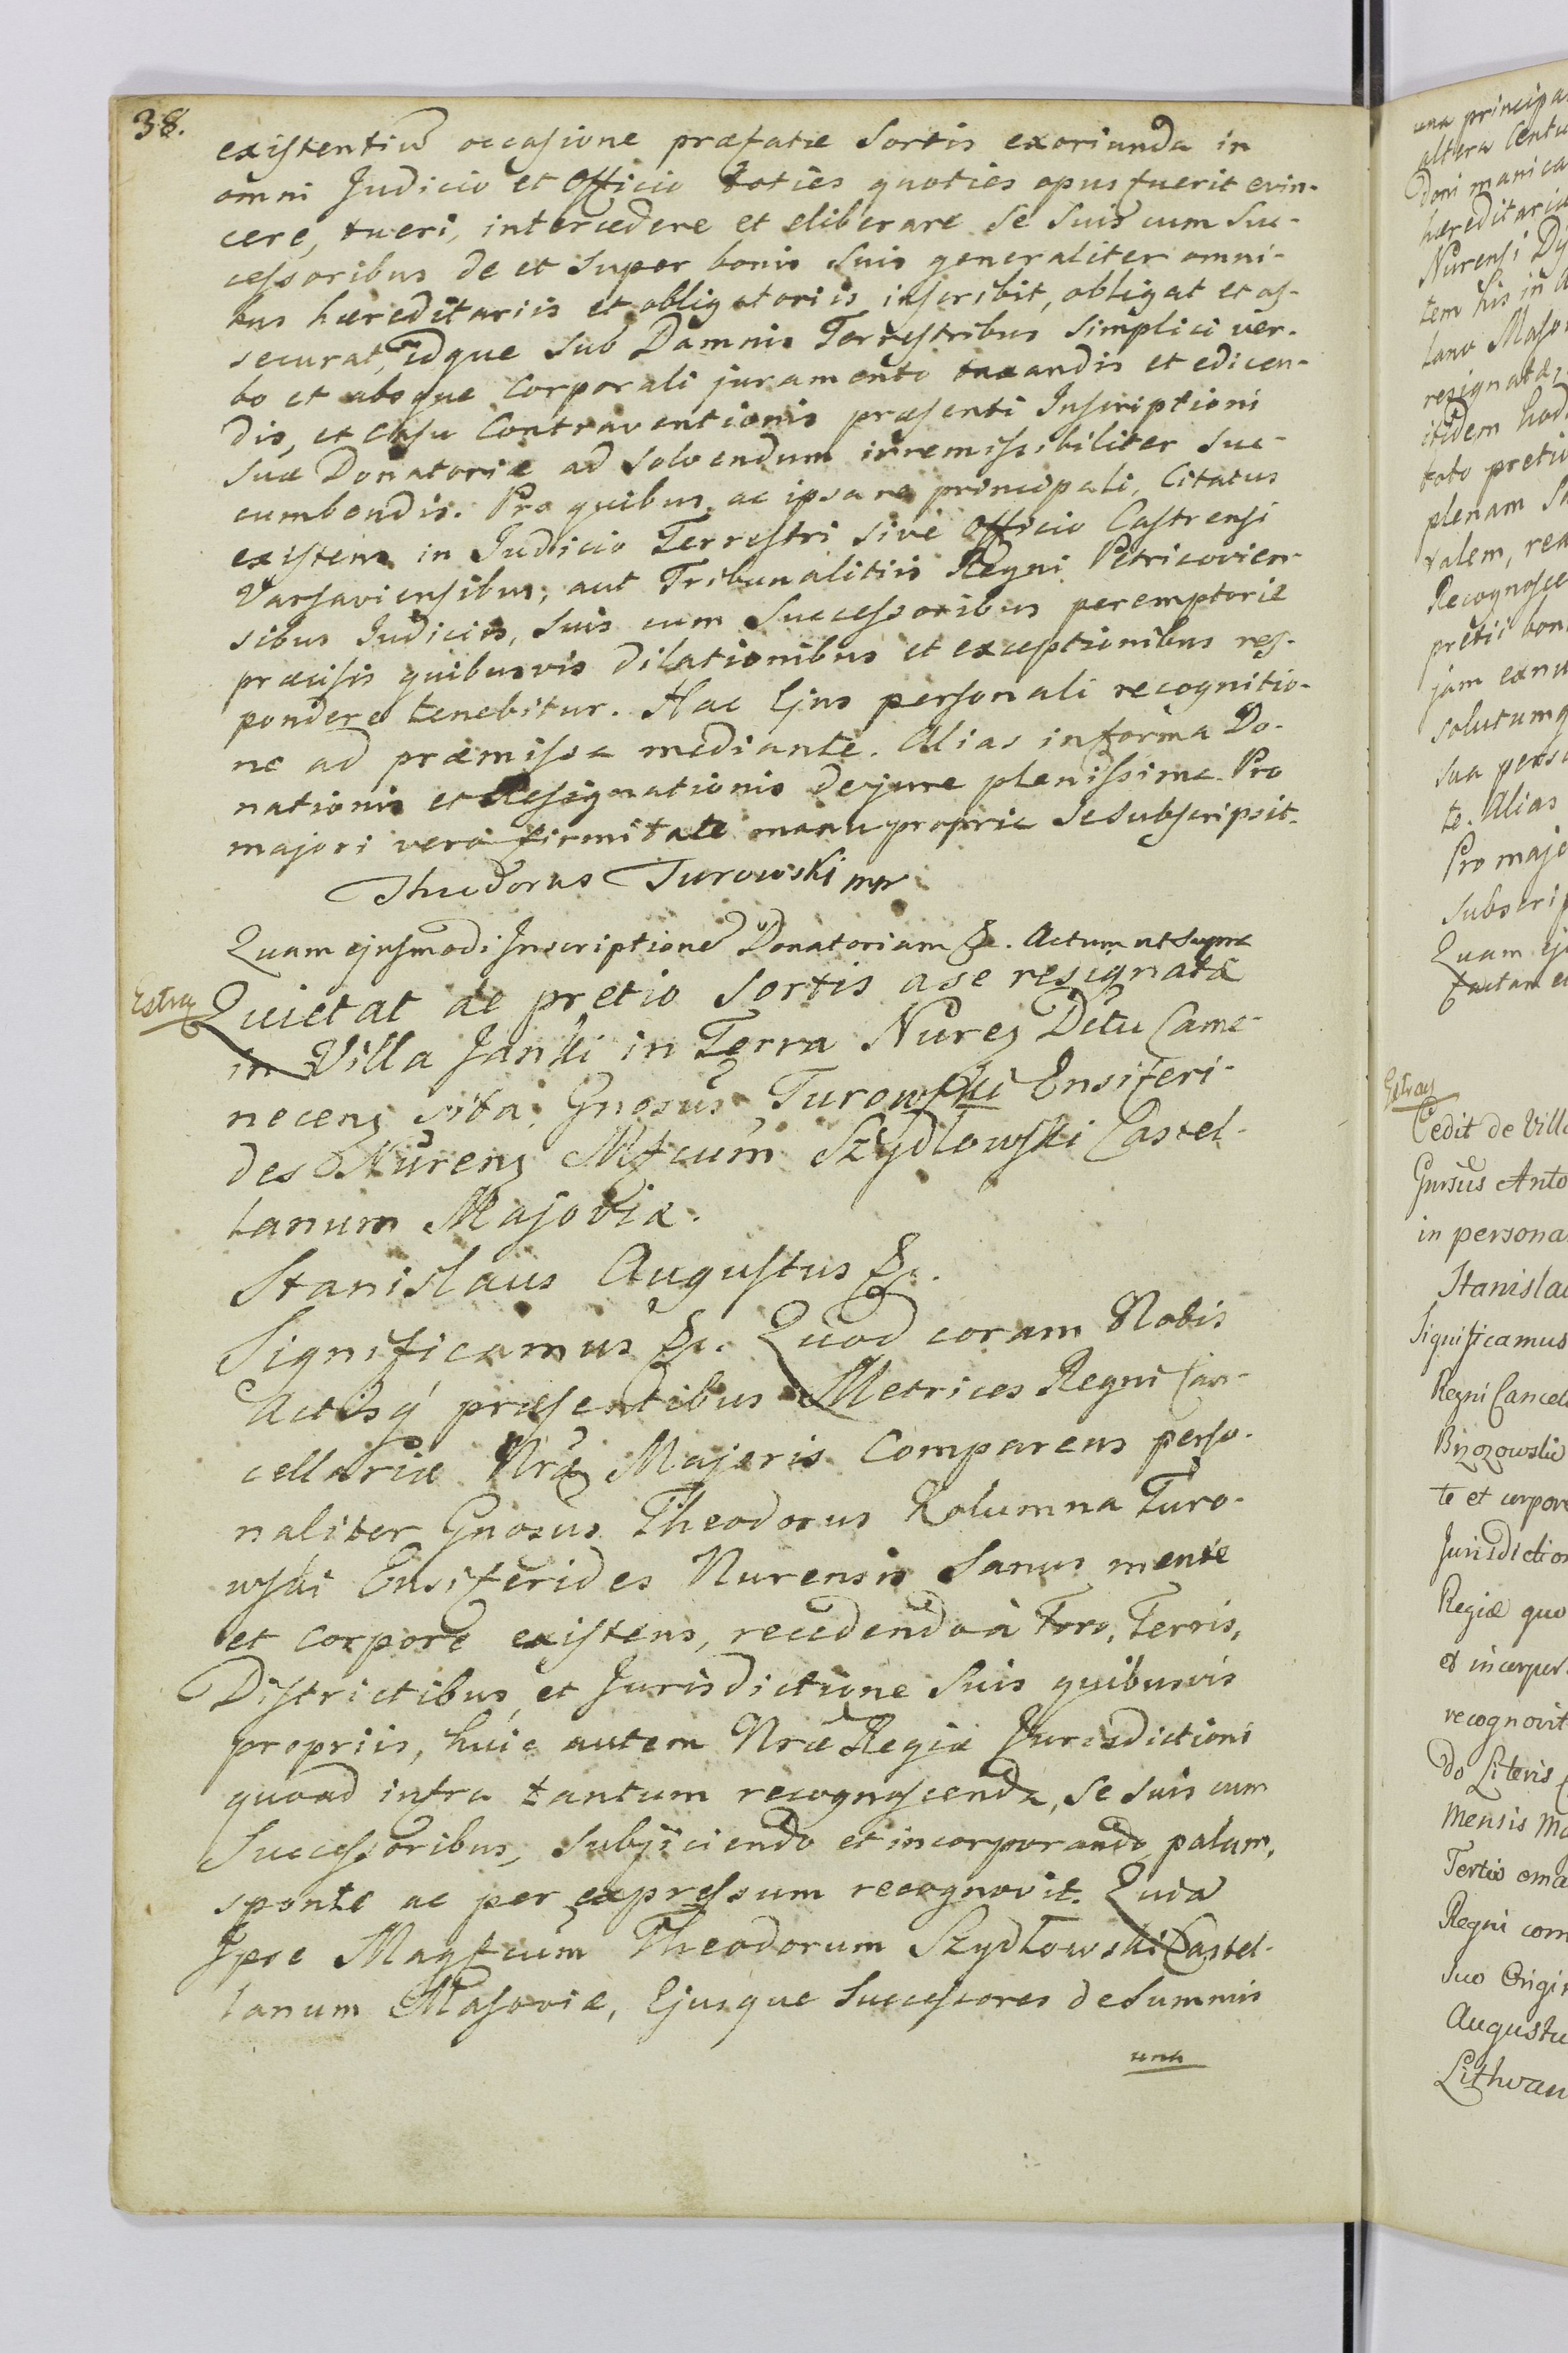 38.
existentiũ occasione præfatæ Sortis exoriunda in
omni Judicio et Officio toties quoties opus fuerit evin-
cere, tueri, intercedere et eliberare se suis cum Suc-
cessoribus de et super bonis suis generaliter omni-
bus hæreditariis et obligatoriis inscribit, obligat et as-
securat, idque sub Damnis Terrestribus simplici ver-
bo et absque Corporali juramento taxandis et edicen-
dis, et casu Contraventionis præsenti Inscriptioni
suæ Donatoriæ ad solvendum irremissibiliter suc-
cumbendis. Pro quibus, ac ipsa re principali, Citatus
existens in Judicio Terrestri sive Officio Castrensi
Varsaviensibus, aut Tribunalitiis Regni Petricovien-
sibus Judiciis, suis cum Successoribus peremptorie
præcisis quibusvis dilationibus et exceptionibus res-
pondere tenebitur. Hac Ejus personali recognitio-
ne ad præmissa mediante. Alias in forma Do-
nationis et Resignationis de jure plenissima. Pro
majori vero firmitate manu propria se subscripsit.
Theodorus Turowski mp
Quam ejusmodi Inscriptionẽ Donatoriam &c. Actum ut supra
Extrac
Quietat de pretio Sortis a se resignatæ
in Villa Janki in Terra Nureñ Dttu Came-
necens sita, Gnosus Turowski Ensiferi-
des Nurens Mfcum Szydlowski Castel-
lanum Masoviæ.
Stanislaus Augustus &c.
Significamus &c. Quod coram Nobis
Actisq́ præsentibus Metrices Regni Can-
cellariæ Nræ Majoris Comparens perso-
naliter Gnosus Theodorus Kolumna Turo-
wski Ensiferides Nurensis Sanus mente
et corpore existens, recedendo à Foro, Terris,
Districtibus, et Jurisdictione suis quibusvis
propriis, huic autem Nræ Regiæ Jurisdictioni
quoad infra tantum recognoscenda, se suis cum
Successoribus, subjiciendo et incorporando palam,
sponte ac per expressum recognovit. Quia
Ipse Magfcum Theodorum Szydłowski Castel-
lanum Masoviæ, Ejusque Successores de Summis
una
una principa
altera Centu
Doni manica
hæreditariu
Nurensi Di
tem his in
lano Maso
resignatæ,
itidem hod
toto pretio
plenam
valem, rea
Recognosce
pretii bon
jam enu
solutumq
sua perso
te. Alias
Pro majo
subscrip
Quam ej
factam
Extrac
Cedit de Villa
Gnosus Anto
in persona
Stanislau
Significamus
Regni Cancel
Brzozowski
te et corpore
Jurisdiction
Regiæ quo
et incorpor
recognovit
do Literis
Mensis Ma
Tertio ema
Regni com
suo Origin
Augustu
Lithvan